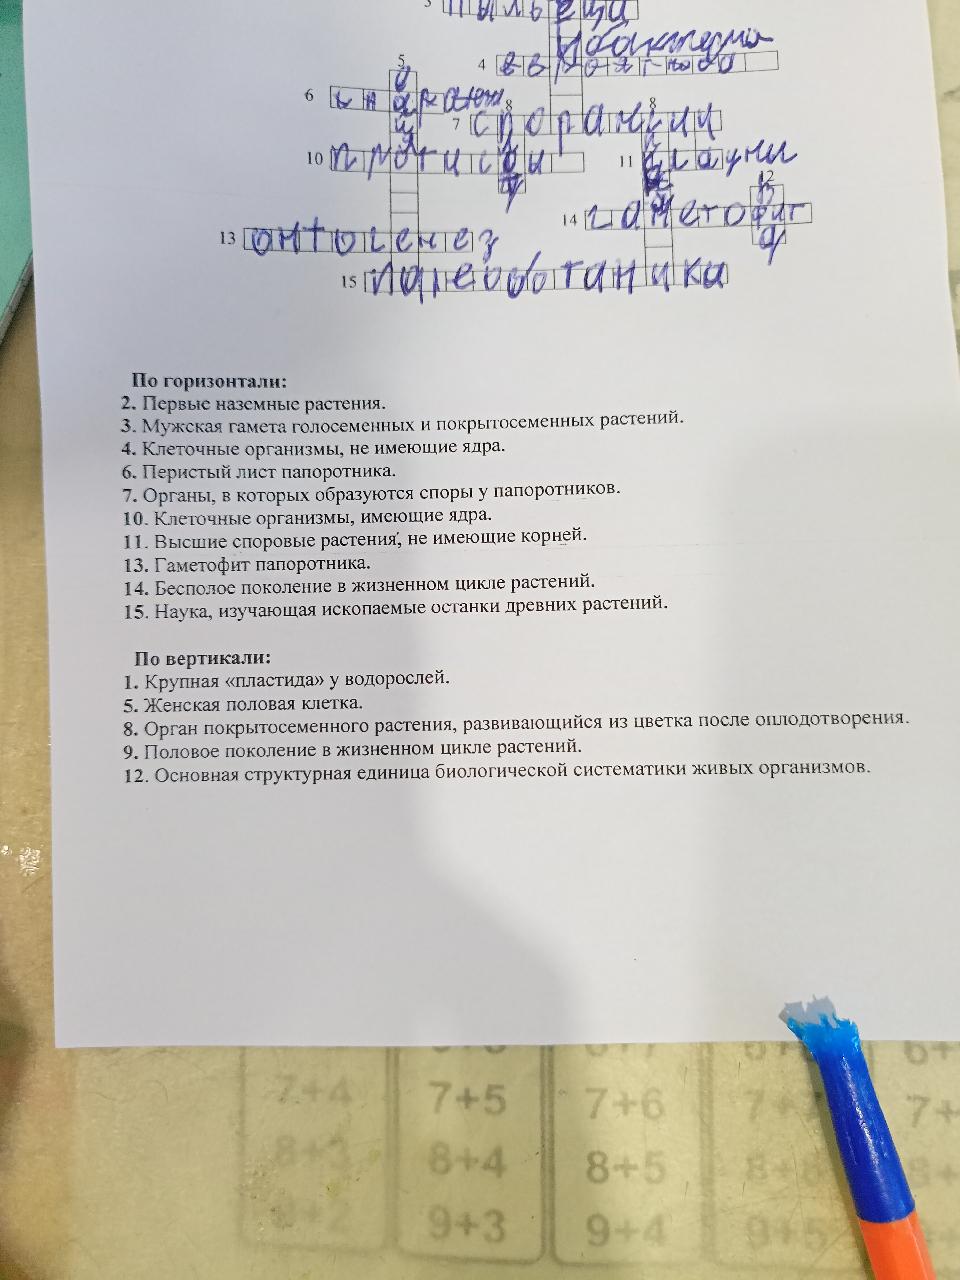 3 пыльеца
бактерия
5
4
6
8 8
7 споранции
10 протисты 11 плауны
12
14 гаметофит
13 онтогенез
15 палеоботаника
По горизонтали:
2. Первые наземные растения.
3. Мужская гамета голосеменных и покрытосеменных растений.
4. Клеточные организмы, не имеющие ядра.
6. Перистый лист папоротника.
7. Органы, в которых образуются споры у папоротников.
10. Клеточные организмы, имеющие ядра.
11. Высшие споровые растения, не имеющие корней.
13. Гаметофит папоротника.
14. Бесполое поколение в жизненном цикле растений.
15. Наука, изучающая ископаемые останки древних растений.
По вертикали:
1. Крупная «пластида» у водорослей.
5. Женская половая клетка.
8. Орган покрытосеменного растения, развивающийся из цветка после оплодотворения.
9. Половое поколение в жизненном цикле растений.
12. Основная структурная единица биологической систематики живых организмов.
7+4 7+5 7+6 7+
8+4 8+5
9+3 9+4 9+5